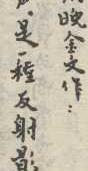 晚金文作：
是一種反射